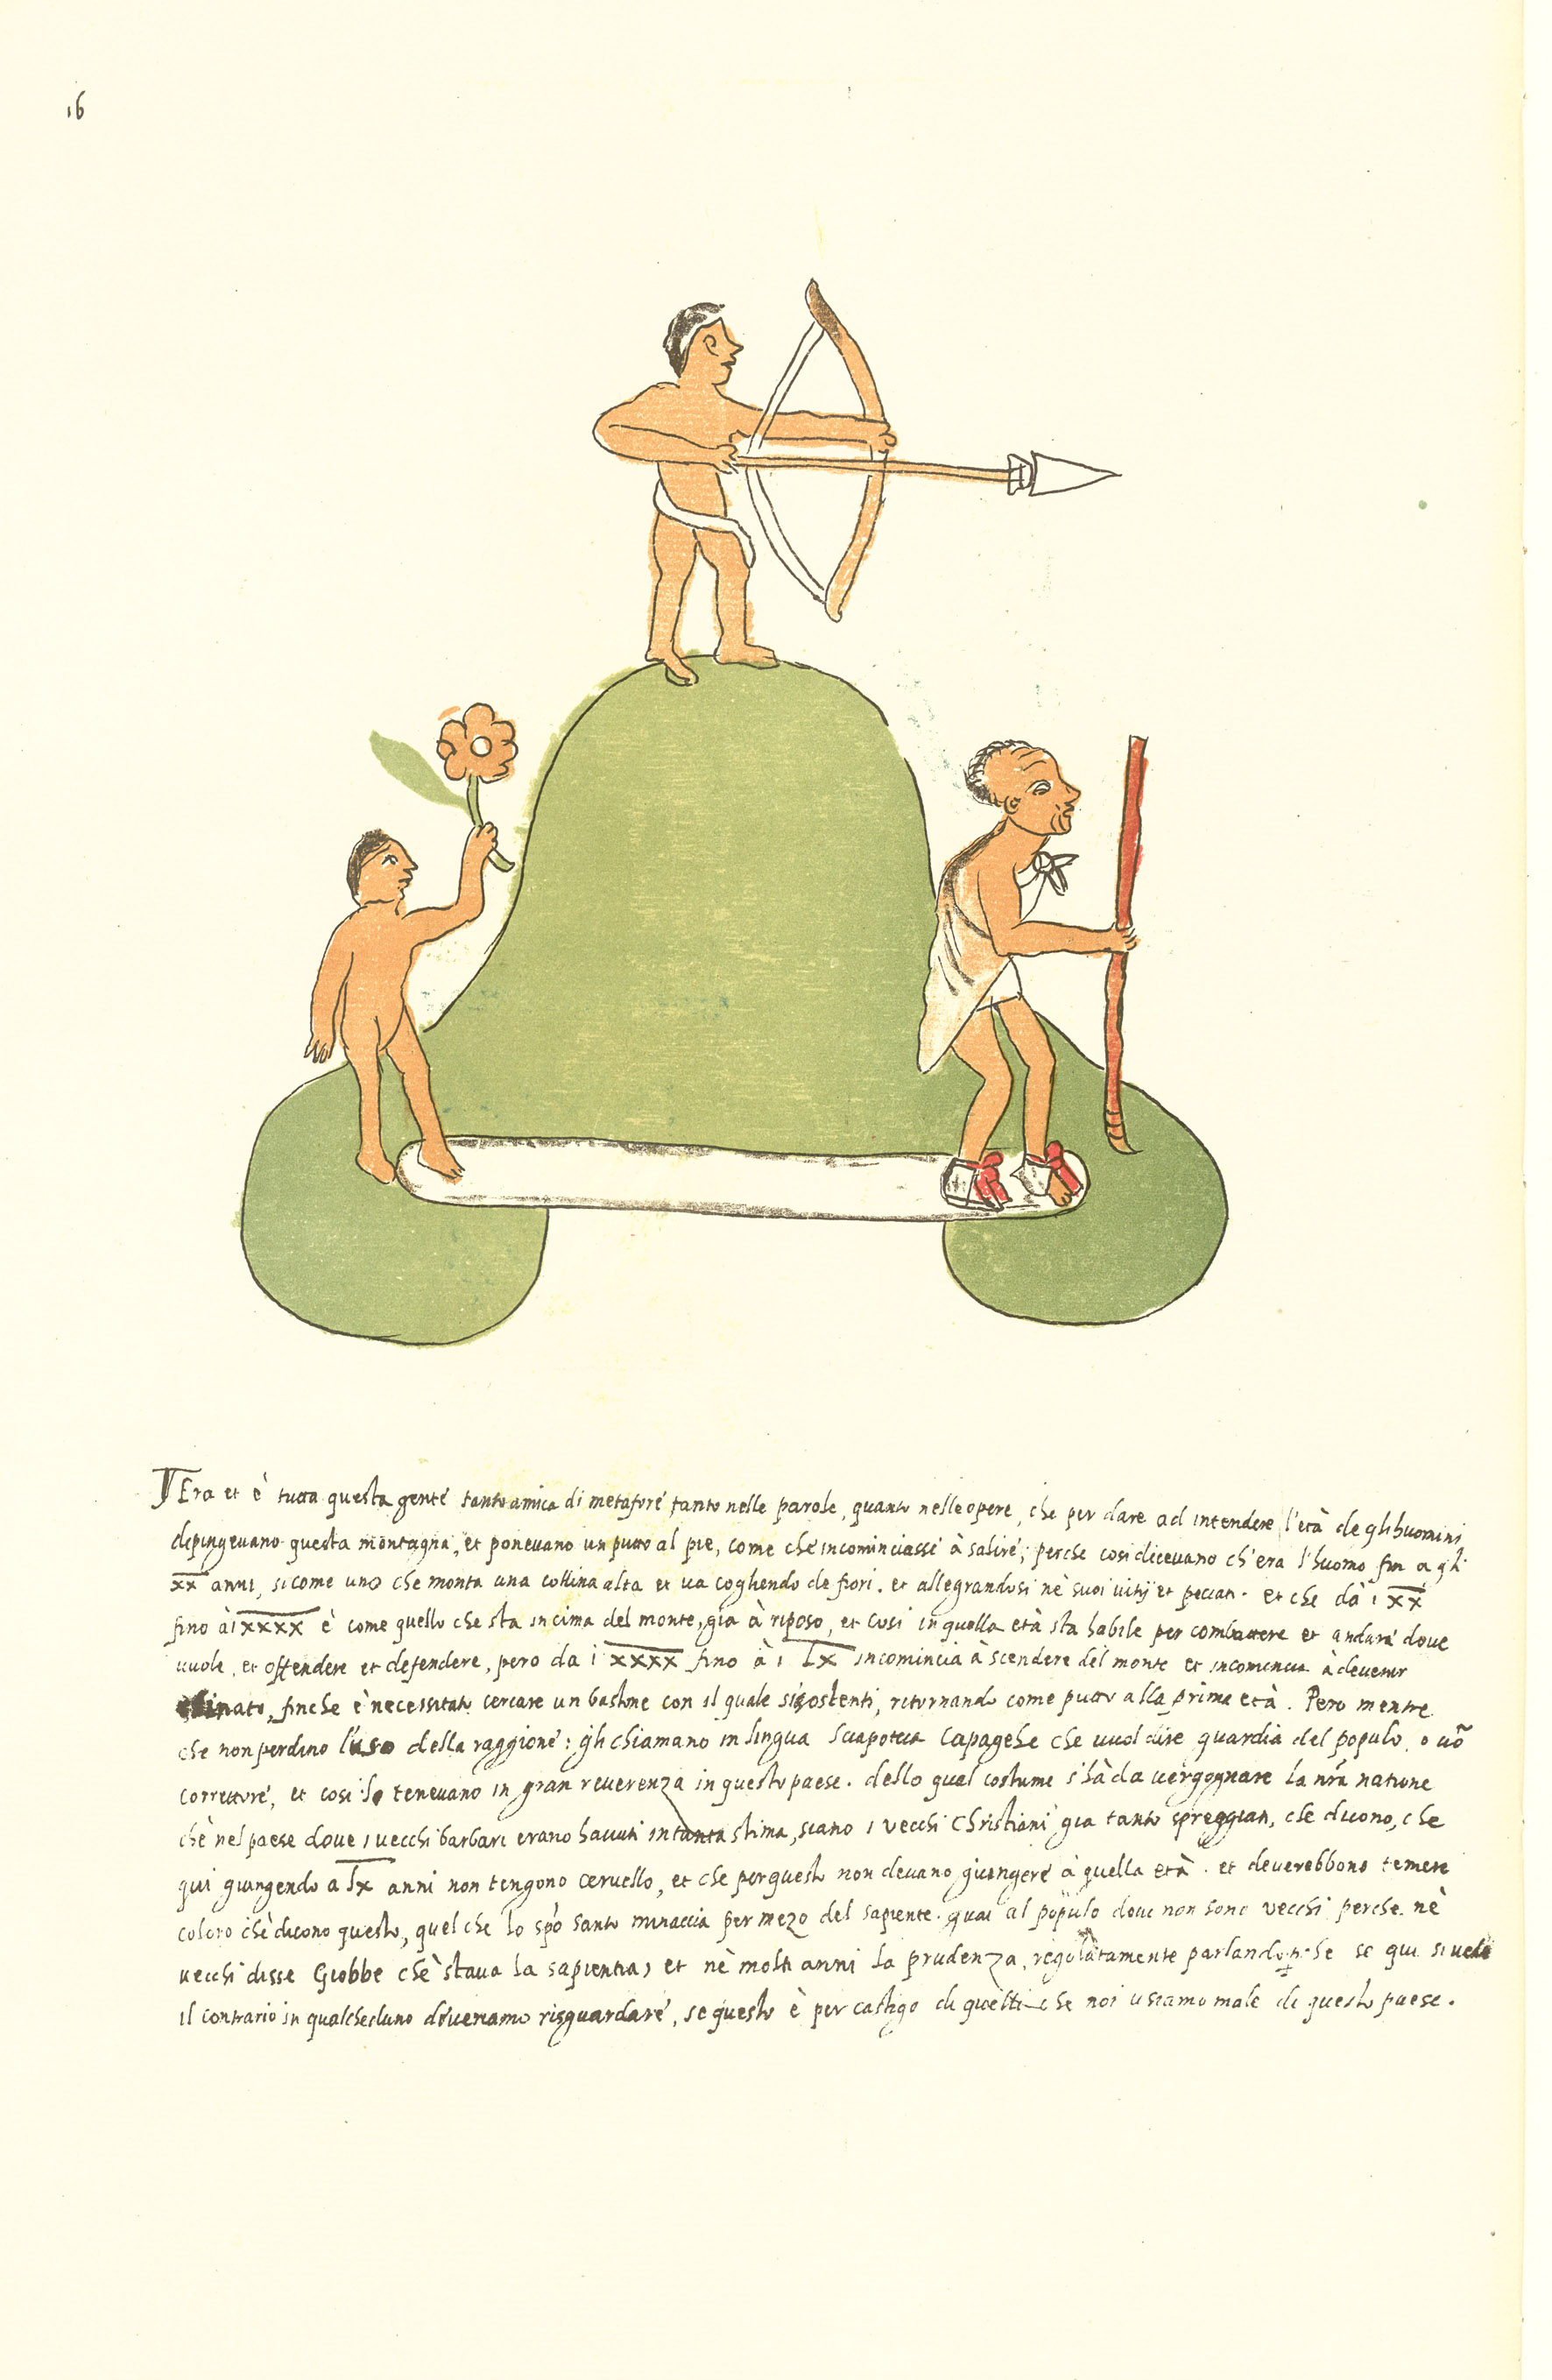 16
Era et è tutta questa gente tanto amica di metafore, tanto nelle parole, quanto nelle opere, che per dare ad intendere l'età de gli huomini
depingevano questa montagna, et ponevano un putto al pie, come che incominciasse à salire; perche cosi dicevano ch'era l'huomo fin a gli
xx anni, si come uno che monta una collina alta et va cogliendo de fiori. et allegrandosi nè suoi vitij et peccati. et che dà i xx
fino à i xxxx è come quello che sta in cima del monte, gia à riposo, et cosi in quella età sta habile per combattere et andare dove
vuole, et offendere et defendere, pero da i xxxx fino à i lx incomincia à scendere del monte et incomincia à devenir
finche è necessitato cercare un bastone con il quale si sostenti, ritornando come putto alla prima età. Pero mentre
che non perdino l'uso della raggione: gli chiamano in lingua che vuol dire guardia del populo, o vō
correttore, et cosi li tenevano in gran reverenza in questo paese. dello qual costume s'hà da vergognare la nrā natione
chè nel paese dove i vecchi barbari erano havuti in tanta stima, siano i vecchi Christiani gia tanto spreggiati, che dicono, che
qui giungendo a lx anni non tengono cervello, et che per questo non devano giungere à quella età. et deverebbono temere
coloro chè dicono questo, quel che lo spō santo minaccia per mezo del sapiente. guai al populo dove non sono vecchi perche nè
vecchi disse Giobbe chè stava la sapientia, et nè molti anni la prudenza, regolatamente parlando, se qui si vede
il contrario in qualcheduno doveriamo risguardare, se questo è per castigo di quelli che noi usiamo male di questo paese.